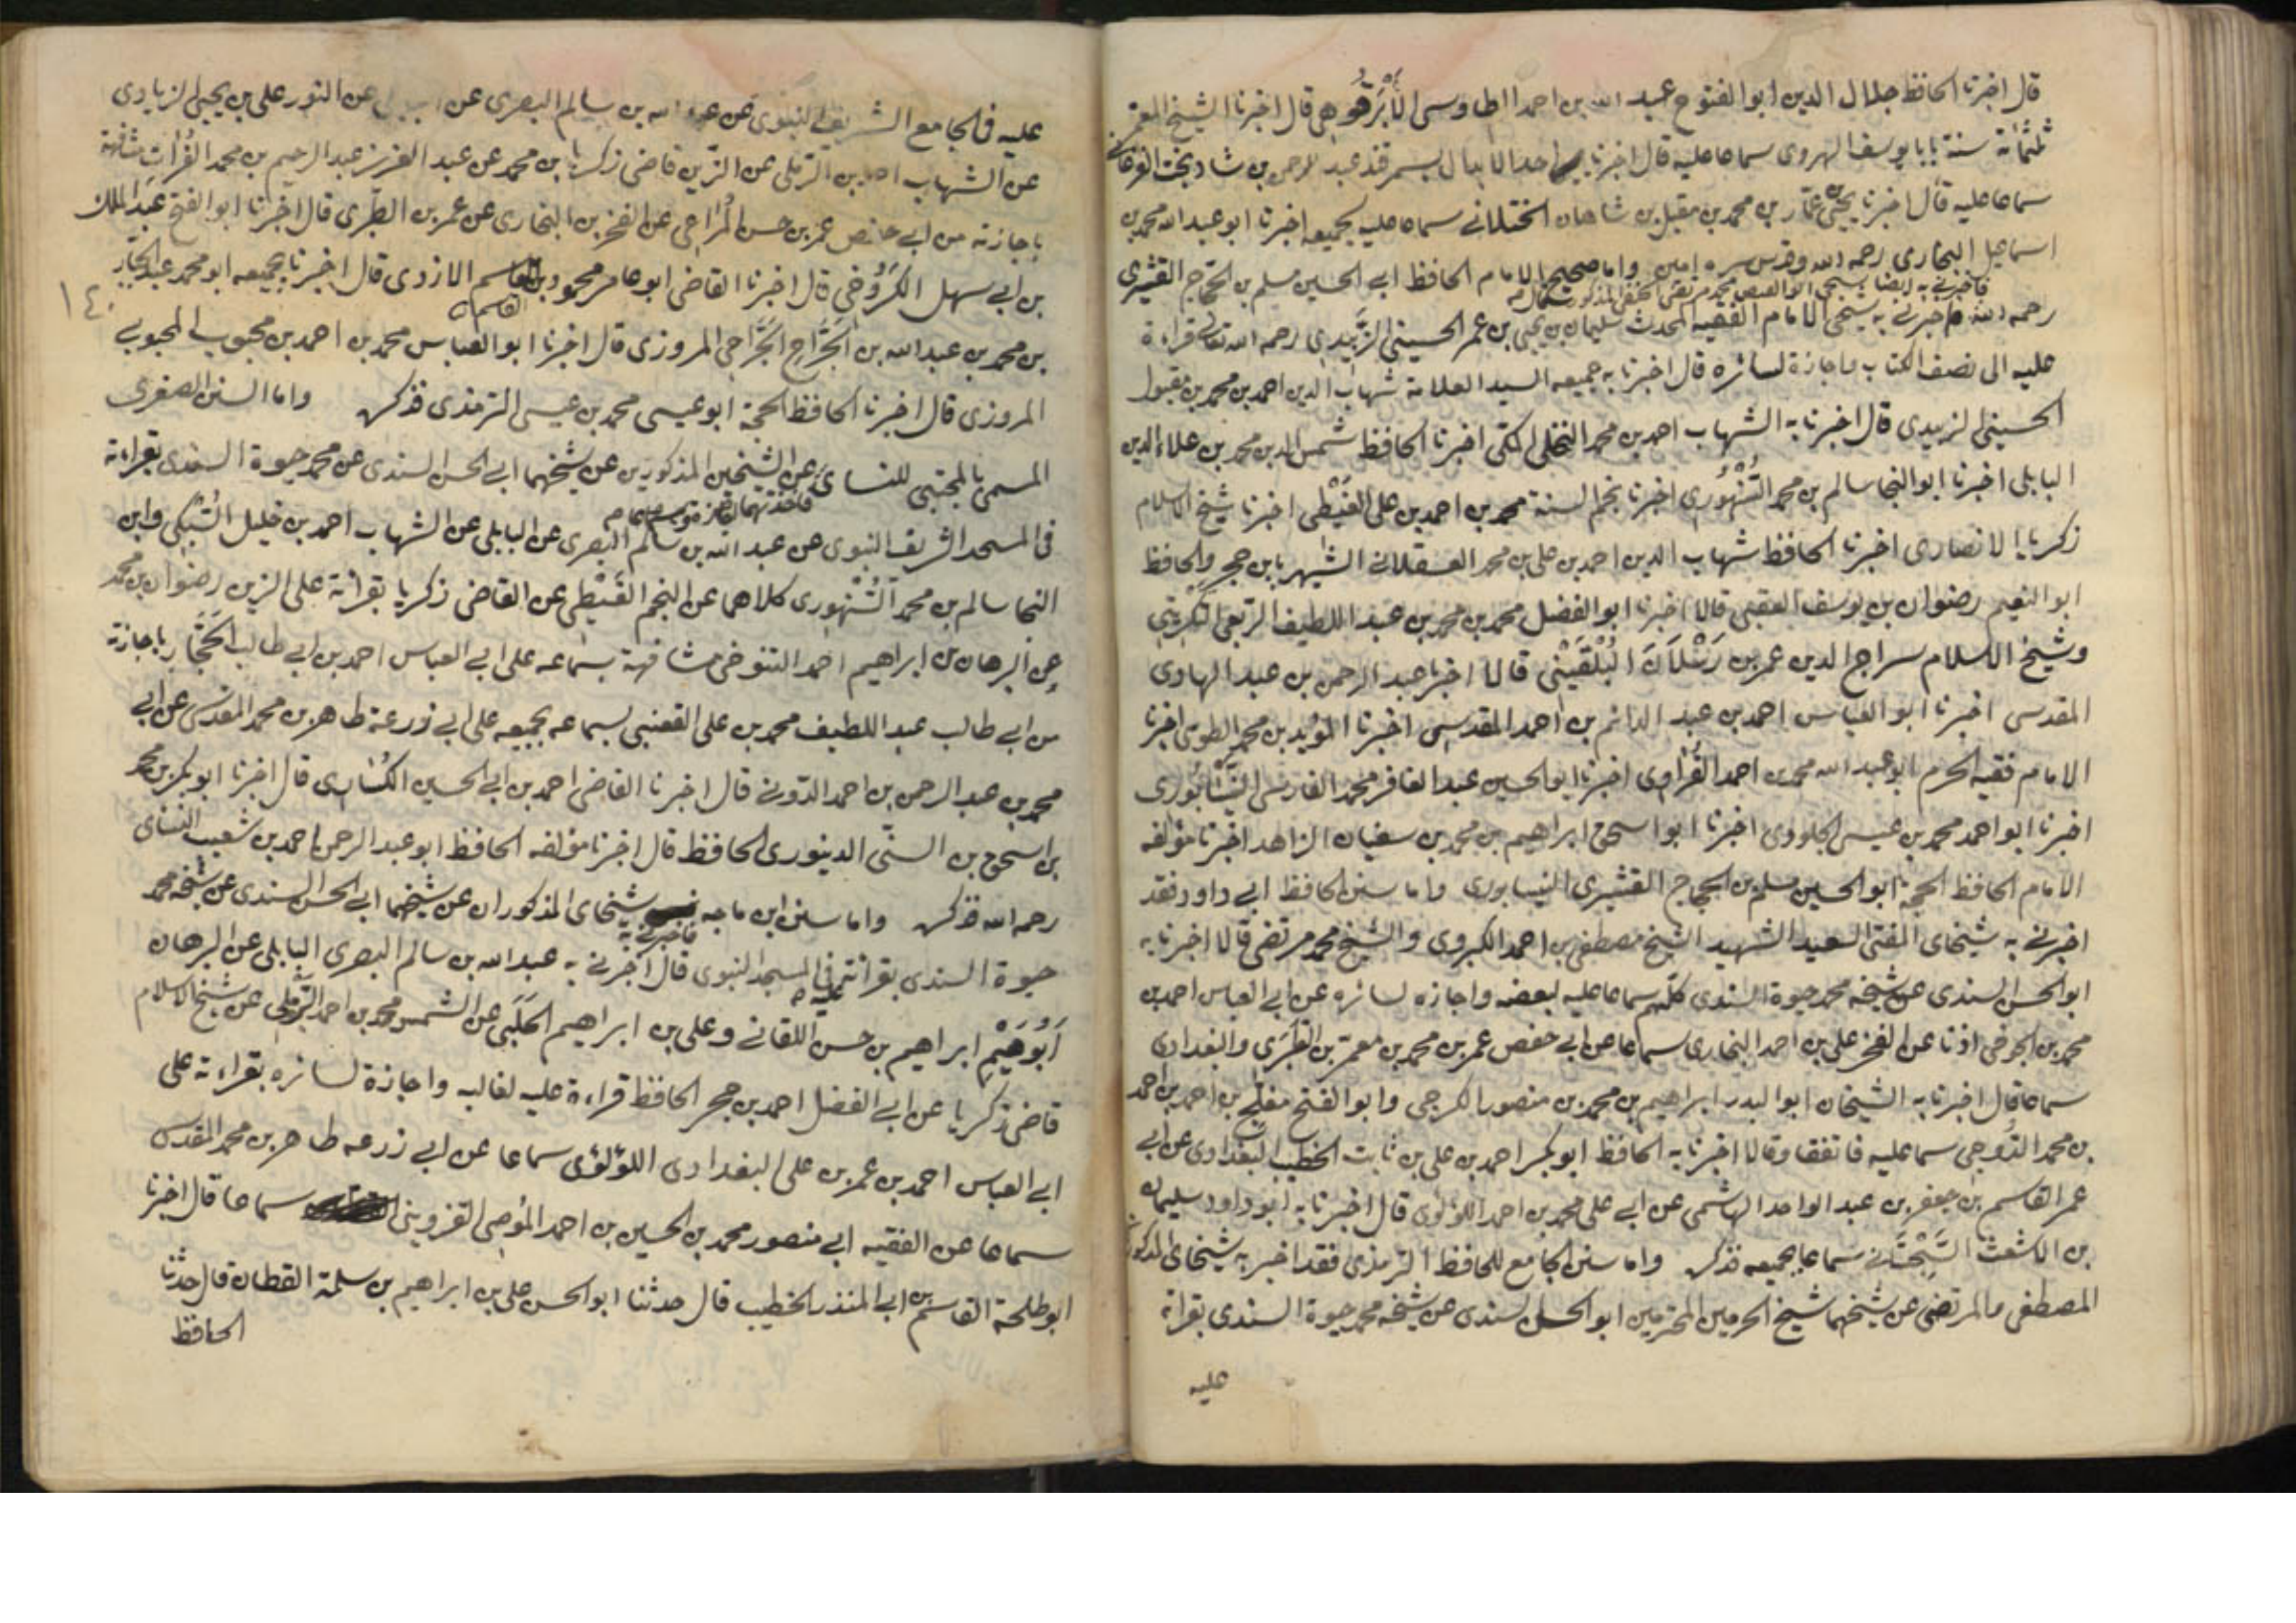 قال اخبرنا الحافظ جلال الدين ابو الفتوح عبد الله بن احمد الطاوسى الأبَرْقُوهى قال اخبرنا الشيخ المعمر
ثلثمائة سنة بابا يوسف الهروى سماعا عليه قال اخبرنا احد الابدال بسمرقند عبد الرحمن بن شاد بخت الفرغانى
سماعا عليه قال اخبرنا يحيى بن عمّار بن محمد بن مقبل بن شاهان الختلانى سماعا عليه لجميعه اخبرنا ابو عبد الله محمد بن
اسماعيل البخارى رحمه الله وقدس سره امين واما صحيح الامام الحافظ ابى الحسين مسلم بن الحجاج القشيرى
فاخبرنى به ايضا شيخى ابو الفيض محمد مرتضى الحنفى المذكور
رحمه الله فاخبرنى به شيخى الامام الفقيه المحدث سليمان بن يحيى بن عمر الحسينى الزبيدى رحمه الله تعالى قراءة
عليه الى نصف الكتاب واجازة لسائره قال اخبرنا به جميعه السيد العلامة شهاب الدين احمد بن محمد بن مقبول
الحسينى الزبيدى قال اخبرنا به الشهاب احمد بن محمد النخلى المكى اخبرنا الحافظ شمس الدين محمد بن علاء الدين
البابلى اخبرنا ابو النجا سالم بن محمد السَّنْهُورى اخبرنا نجم السنة محمد بن احمد بن على الغَيْطى اخبرنا شيخ الاسلام
زكريا الانصارى اخبرنا الحافظ شهاب الدين احمد بن على بن محمد العسقلانى الشهير بابن حجر والحافظ
ابو النعيم رضوان بن يوسف العقبى قالا اخبرنا ابو الفضل محمد بن محمد بن عبد اللطيف الربعى التكريتى
وشيخ الاسلام سراج الدين عمر بن رَسْلَانَ البُلْقَيْنى قالا اخبرنا عبد الرحمن بن عبد الهادى
المقدسى اخبرنا ابو العباس احمد بن عبد الدائم بن احمد المقدسى اخبرنا المؤيد بن محمد الطوسى اخبرنا
الامام فقيه الحرم ابو عبد الله محمد بن احمد الفُرَاوى اخبرنا ابو الحسين عبد الغافر محمد الفارسى النَّيْسَابُورى
اخبرنا ابو احمد محمد بن عيسى الجلودى اخبرنا ابو اسحق ابراهيم بن محمد بن سفيان الزاهد اخبرنا مؤلفه
الامام الحافظ الحجة ابو الحسين مسلم بن الحجاج القشيرى النيسابورى واما سنن الحافظ ابى داود فقد
اخبرنى به شيخاى المفتى السعيد الشهيد الشيخ مصطفى بن احمد الكبروى والشيخ محمد مرتضى قالا اخبرنا به
ابو الحسن السندى عن شيخه محمد حيوة السندى كلهم سماعا عليه لبعضه واجازه لسائره عن ابى العباس احمد بن
محمد بن الجوخى اذنا عن الفخر على بن احمد البخارى سماعا عن ابى حفص عمر بن محمد بن معمر بن الطبَرَى والبغدادى
سماعا قال اخبرنا به الشيخان ابو البدر ابراهيم بن محمد بن منصور الكرجى وابو الفتح مفلح بن احمد بن احمد
بن محمد الدُّوجى سما عليه فاتفقا وقالا اخبرنا به الحافظ ابو بكر احمد بن على بن ثابت الخطيب البغدادى عن ابى
عمر القاسم بن جعفر بن عبد الواحد الهاشمى عن ابى على محمد بن احمد اللؤلؤى قال اخبرنا به ابو داود سليمان
بن الاشعث السِّجِسْتَانى سماعا بجميعه فذكره واما سنن الجامع للحافظ الترمذى فقد اخبر به شيخاى المذكوران
المصطفى والمرتضى عن شيخهما شيخ الحرمين المحترمين ابو الحسن السندى عن شيخه محمد حيوة السندى بقراءة
عليه
عليه فى الجامع الشريف النبوى عن عبد الله بن سالم البصرى عن البابلى عن النور على بن يحيى الزيادى
عن الشهاب احمد بن الرملى عن الزين قاضى زكريا بن محمد عن عبد العزيز عبد الرحيم بن محمد الفرات مشافهة
باجازته من ابى حفص عمر بن حسن المراغى عن الفخر بن البخارى عن عمر بن الطبرى قال اخبرنا ابو الفتح عبد الملك
بن ابى سهل الكَرُوخى قال اخبرنا القاضى ابو عامر محمود بن القاسم الازدى قال اخبرنا بجميعه ابو محمد عبد الجبّار
القاسم
١٤٠
بن محمد بن عبد الله بن الجَرَّاحِ الجَرَّاحى المروزى قال اخبرنا ابو العباس محمد بن احمد بن محبوب المحبوبى
المروزى قال اخبرنا الحافظ الحجة ابو عيسى محمد بن عيسى الترمذى فذكره واما السنن الصغرى
المسمى بالمجتبى للنسائى عن الشيخين المذكورين عن شيخهما ابى الحسن السندى عن محمد حيوة السندى بقراءته
فى المسجد الشريف النبوى عن عبد الله بن سالم البصرى عن البابلى عن الشهاب احمد بن خليل السُّبكى وابى
النجا سالم بن محمد السَّنْهُورى كلاهما عن النجم الغَيْطى عن القاضى زكريا بقرائة على الزين رضوان بن محمد
عن البرهان بن ابراهيم احمد التنوخى مشافهة بسماعه على ابى العباس احمد بن ابى طالب الحَجَّار باجازة
من ابى طالب عبد اللطيف محمد بن على القعنبى بسماعه بجميعه على ابى زرعة طاهر بن محمد المقدسى عن ابى
محمد بن عبد الرحمن بن احمد الدّونى قال اخبرنا القاضى احمد بن ابى الحسين الكسّارى قال اخبرنا ابو بكر بن محمد
بن اسحق بن السنّى الدينورى الحافظ قال اخبرنا مؤلفه الحافظ ابو عبد الرحمن احمد بن شعيب النسائى
رحمه الله فذكره واما سنن ابن ماجه شيخاى المذكوران عن شيخهما ابى الحسن السندى عن شيخه محمد
فاخبرنى به
حيوة السندى بقرائته فى المسجد النبوى قال اخبرنى به عبد الله بن سالم البصرى البابلى عن البرهان
عليه
ابراهيم بن حسن اللقانى وعلى بن ابراهيم الحَلَبى عن الشمس محمد بن احمد الرَّملى عن شيخ الاسلام
قاضى زكريا عن ابى الفضل احمد بن حجر الحافظ قراءة عليه لغالبه واجازة لسائره بقراءته على
ابى العباس احمد بن عمر بن على البغدادى اللؤلؤى سماعا عن ابى زرعه طاهر بن محمد المقدسى
سماعا عن الفقيه ابى منصور محمد بن الحسين بن احمد القزوينى سماعا قال اخبرنا
ابو طلحة القاسم بن ابى المنذر الخطيب قال حدثنا ابو الحسن على بن ابراهيم بن سلمة القطان قال حدثنا
الحافظ